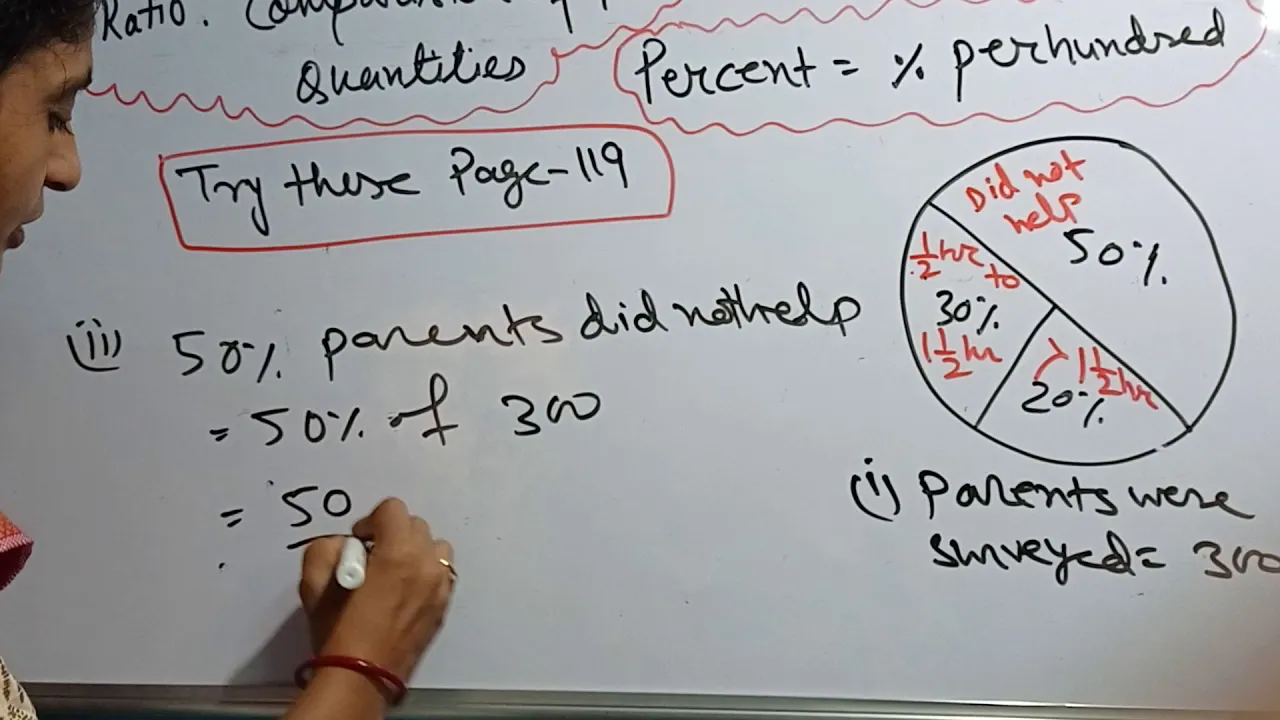 Ratio. Comparison
Quantities
Percent = % perhundred
Try these Page-119
(ii) 50% parents did not help
= 50% of 300
= 50
Did not
help
50%
1/2 hr
to
30%
1 1/2 hr
> 1 1/2 hr
20%
(i) Parents were
surveyed = 300